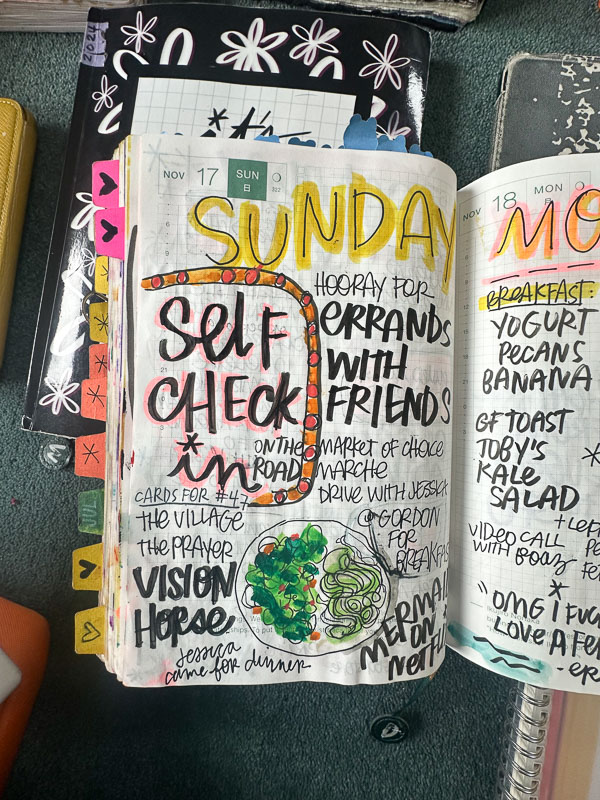 2024
it's
NOV 17 SUN
日
322
SUNDAY
Self
CHECK
*in
ON THE
ROAD
HOORAY FOR
ERRANDS
WITH
FRIENDS
MARKET OF CHOICE
MARCHE
DRIVE WITH JESSICA
CARDS FOR #47
THE VILLAGE
THE PRAYER
VISION
HORSE
Jessica
came for dinner
GORDON
FOR
BREAKFAST
MERMAID
ON
NETFLIX
NOV 18 MON
日
MO
BREAKFAST:
YOGURT
PECANS
BANANA
GF TOAST
TOBY'S
KALE
SALAD
VIDEO CALL
WITH BOAZ
"OMG I FUC
LOVE A FE
-ER